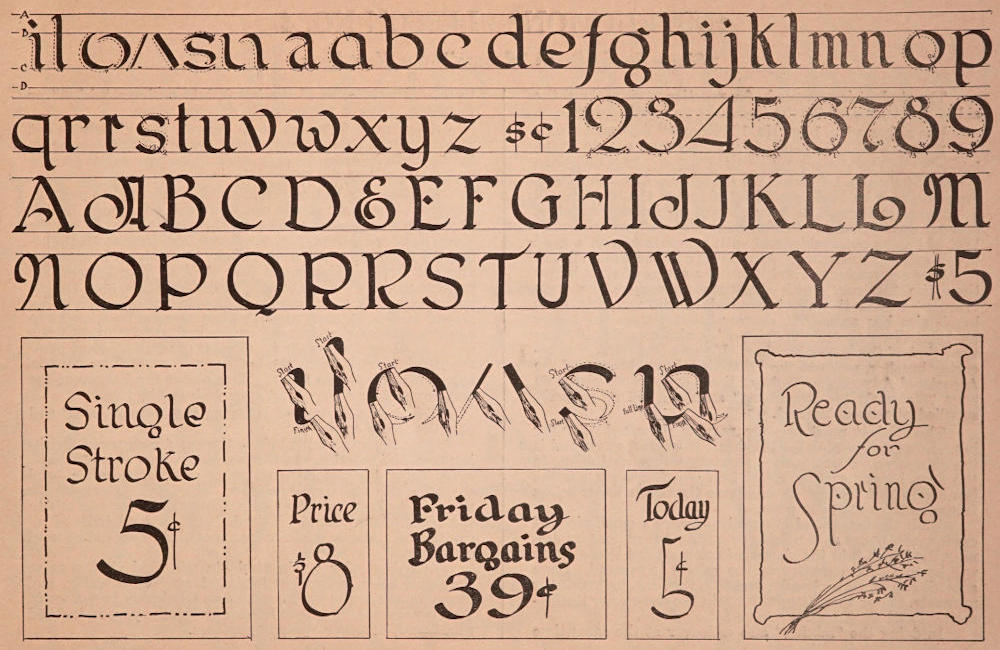 A
B
C
D
i l o ʌ s u a a b c d e f g h i j k l m n o p
q r r s t u v w x y z $ ¢ 1 2 3 4 5 6 7 8 9
A A B C D & E F G H I J J K L L M
N O P Q R R S T U V W X Y Z $5
Start Start Start Start Start
Finish Start Full Line Finish
Single
Stroke
5¢
Price
$8
Friday
Bargains
39¢
Today
5¢
Ready
for
Spring